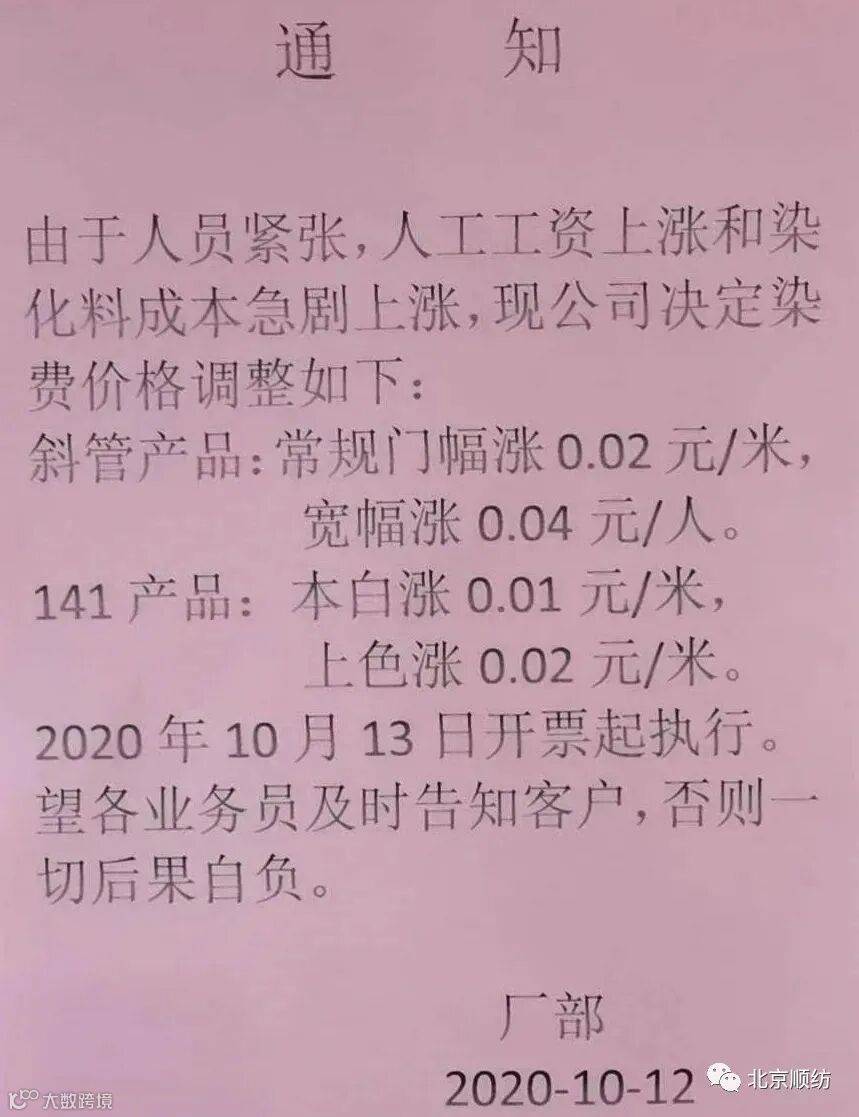 通 知
由于人员紧张,人工工资上涨和染
化料成本急剧上涨,现公司决定染
费价格调整如下:
斜管产品:常规门幅涨 0.02 元/米,
宽幅涨 0.04 元/人。
141 产品: 本白涨 0.01 元/米,
上色涨 0.02 元/米。
2020 年 10 月 13 日开票起执行。
望各业务员及时告知客户,否则一
切后果自负。
厂部
2020-10-12
北京顺纺
大数跨境